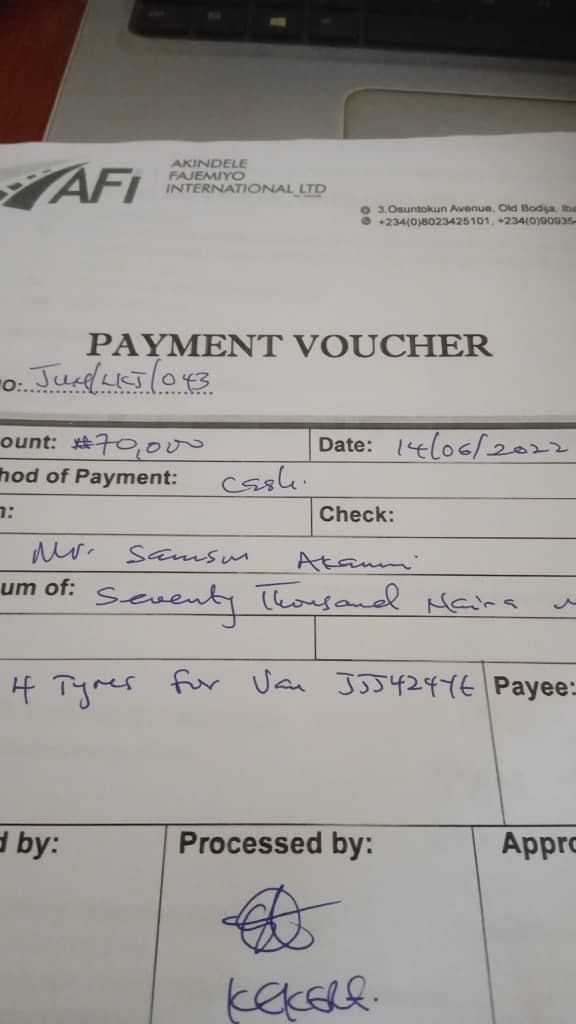 AFi
AKINDELE
FAJEMIYO
INTERNATIONAL LTD
3, Osuntokun Avenue, Old Bodija, Iba
+234(0)8023425101, +234(0)90935
PAYMENT VOUCHER
o: June/LKJ/043
ount: ₦70,000 Date: 14/06/2022
hod of Payment: Cash.
n: Check:
Mr. Samson Akanni
um of: Seventy Thousand Naira
4 Tyres for Van JJJ424YE Payee:
d by: Processed by: Appro